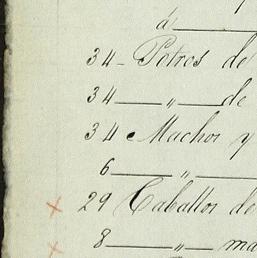 á
34 - Potros de
34 — „ — de
34 Machos y
6 — „ —
29 Caballos de
8 — „ — ma